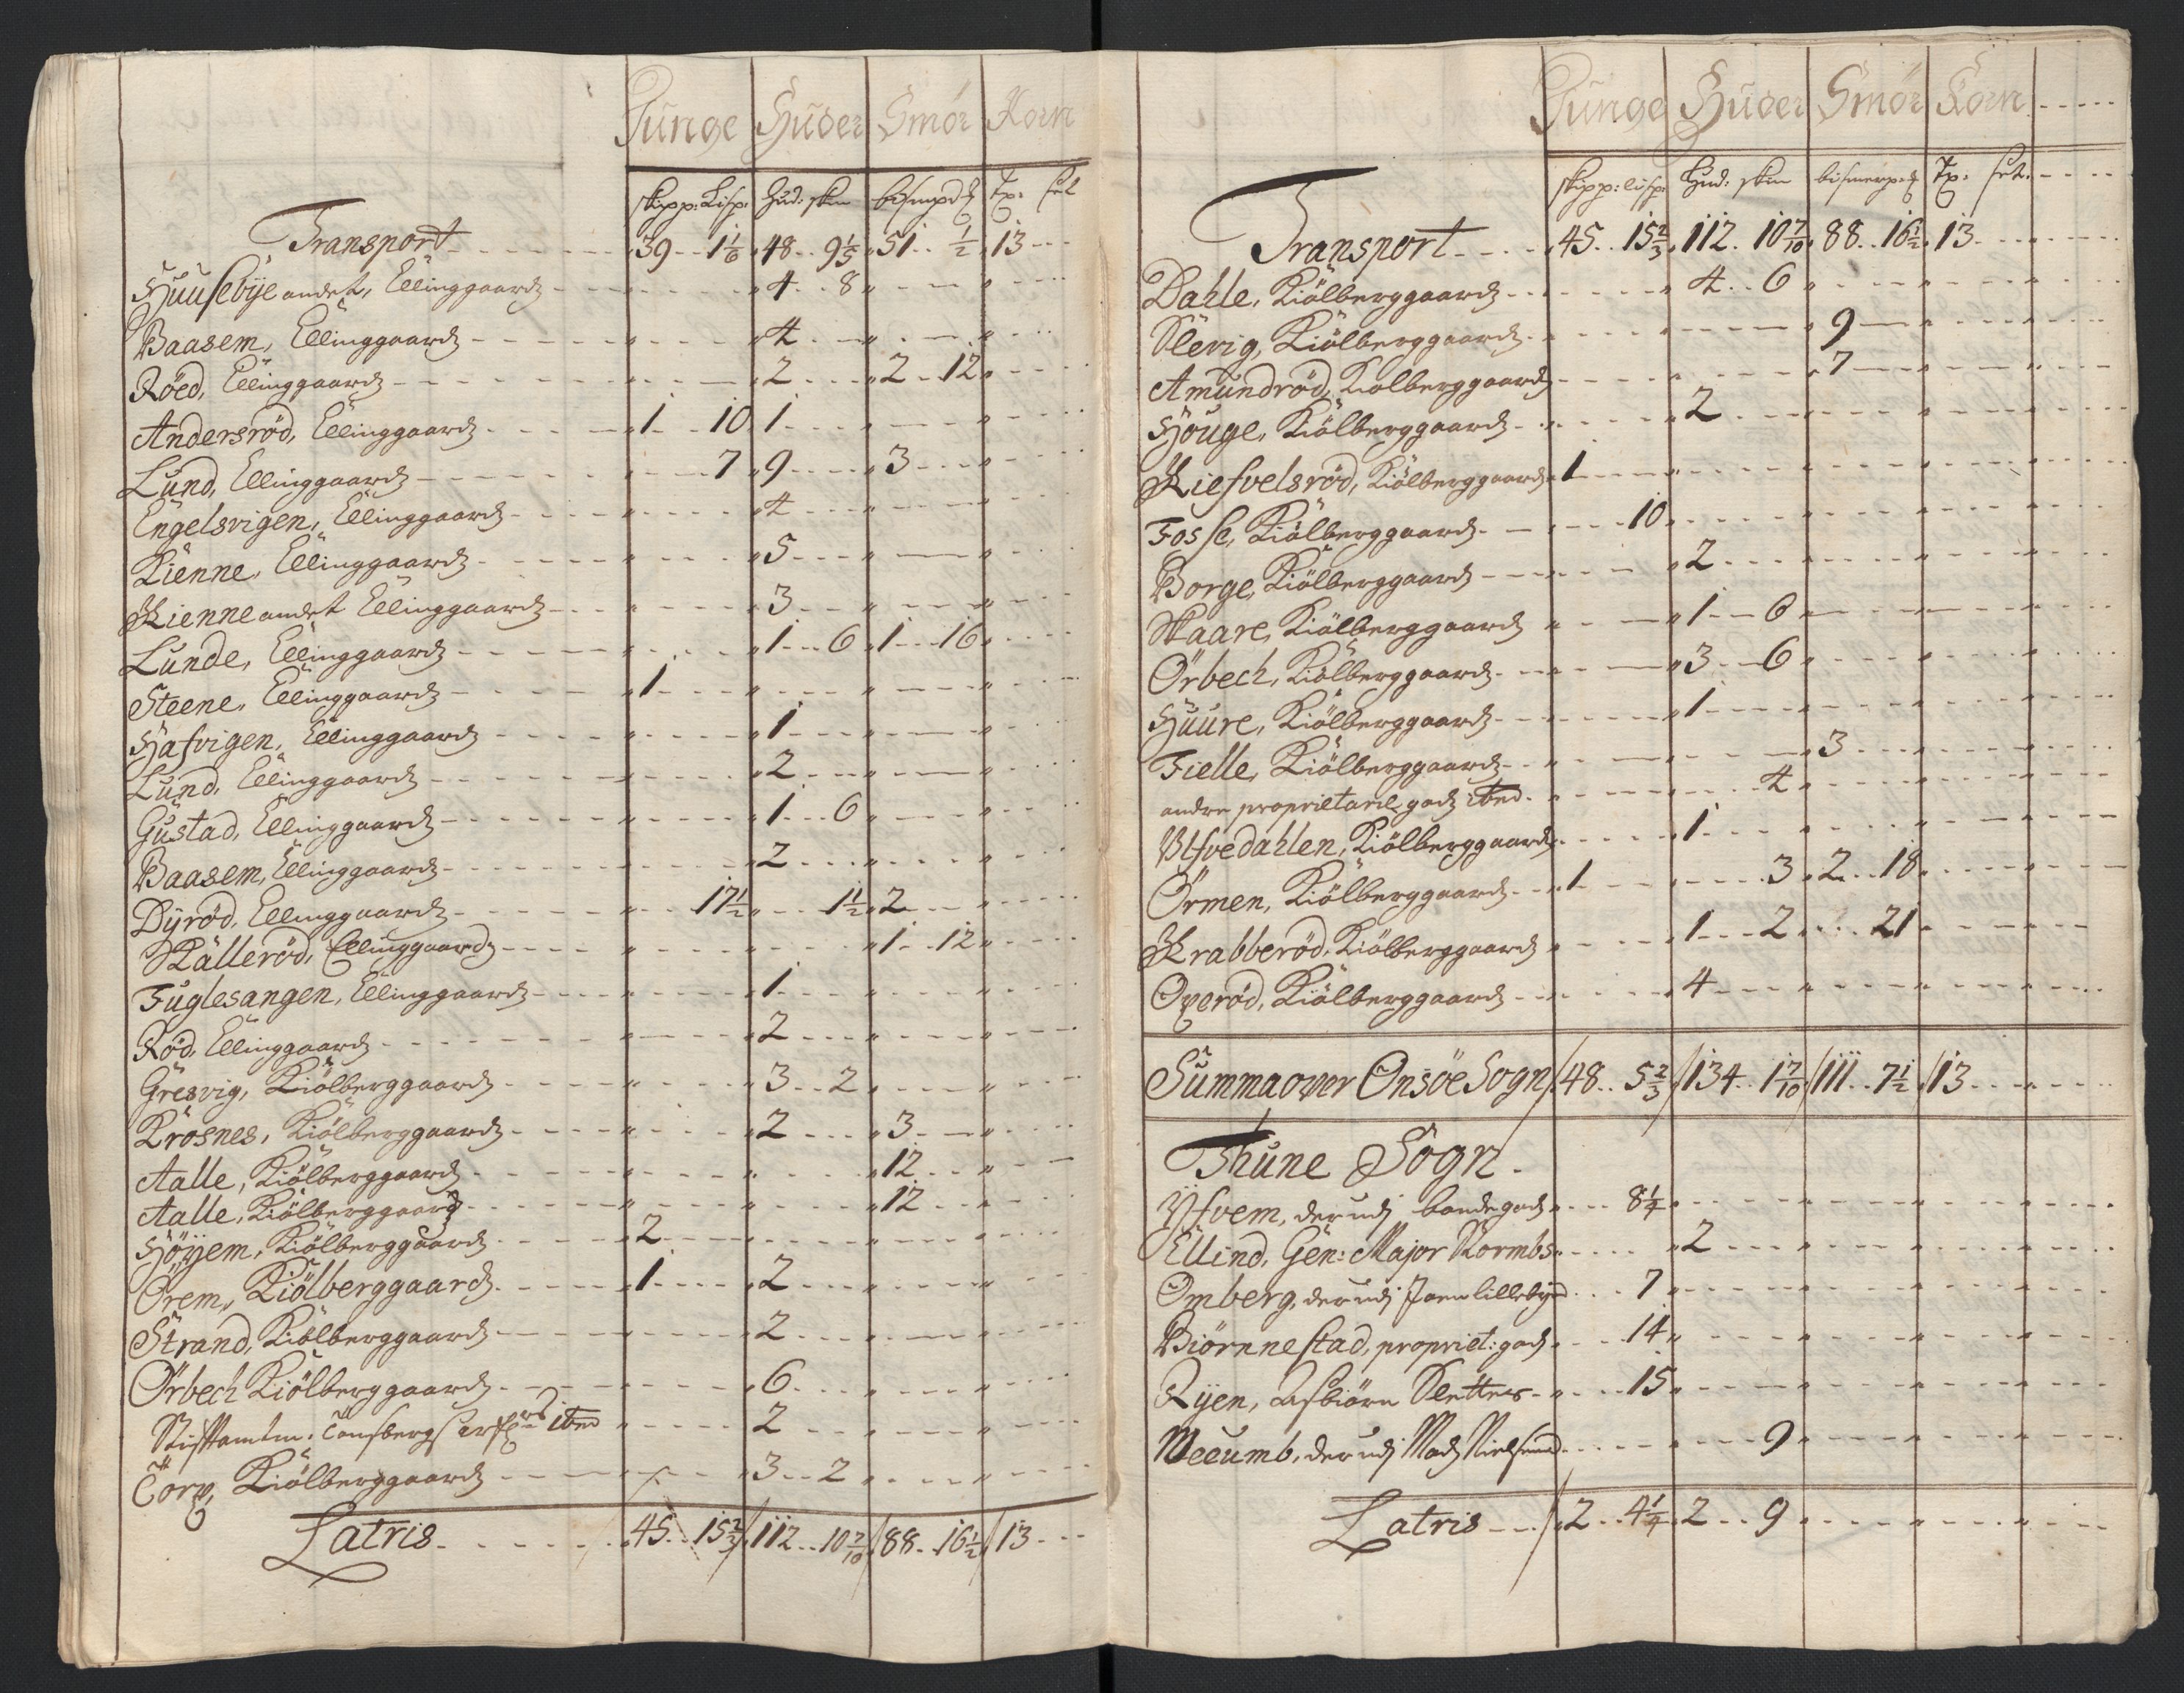 Tunge Huder Smör Korn
skipp: Lisp: Hud: skin bismpd ℔ Tp: set
Transport 39 1 1/6 48 9 1/5 51 1/2 13
Huusebÿe andet, Ellinggaard 4 8
Baasem, Ellinggaard 4
Röed, Ellinggaard 2 2 12
Andersröd, Ellinggaard 1 10 1
Lund, Ellinggaard 7 9 3
Engelsvigen, Ellinggaard 4
Kienne, Ellinggaard 5
Kienne andet Ellinggaard 3
Lunde, Ellinggaard 1 6 1 16
Steene, Ellinggaard 1
Hafvigen, Ellinggaard 1
Lund, Ellinggaard 2
Gustad, Ellinggaard 1 6
Baasem, Ellinggaard 2
Dÿröd, Ellinggaard 17 1/2 1 1/2 2
Skälleröd, Ellinggaard 1 12
Fuglesangen, Ellinggaard 1
Röd, Ellinggaard 2
Gresvig, Kiölberggaard 3 2
Krosnes, Kiölberggaard 2 3
Aalle, Kiölberggaard 12
Aalle, Kiölberggaard 12
Höÿem, Kiölberggaard 2
Örem, Kiölberggaard 1 2
Strand, Kiölberggaard 2
Örbech Kiölberggaard 6
Stiftamtm: Tonsbergs ibed 2
Torp, Kiölberggaard 3 2
Latris 45 15 2/3 112 10 7/10 88 16 1/2 13
Tunge Huder Smör Korn
skipp: lisp: Hud: skin bismerp: ℔ Tp: set
Transport 45 15 2/3 112 10 7/10 88 16 1/2 13
Dahle, Kiölberggaard 4 6
Slevig, Kiölberggaard 9
Amundröd, Kiölberggaard 7
Houge, Kiölberggaard 2
Kiefvelsröd, Kiölberggaard 1
Fosse, Kiölberggaard 10
Borge, Kiölberggaard 2
Skaare, Kiölberggaard 1 6
Örbech, Kiölberggaard 3 6
Huure, Kiölberggaard 1
Fielle, Kiölberggaard 3
andre proprietarie gods ibed. 4
Ulfvedahlen, Kiölberggaard 1
Örmen, Kiölberggaard 1 3 2 18
Krabberöd, Kiölberggaard 1 2 21
Overöd, Kiölberggaard 4
Summa over Onsöe Sogn 48 5 2/3 134 1 7/10 111 7 1/2 13
Thune Sogn.
Ÿfvem, derudj bondegods 8 1/4
Ellind, Gen: Major Stormbs 2
Omberg, derudj Joen lillebye 7
Biörnnestad, propriet: gods 14
Rÿen, Asbiörn Sletter 15
Meeumb, derudj Mads Nielsen 9
Latris 2 4 1/4 2 9